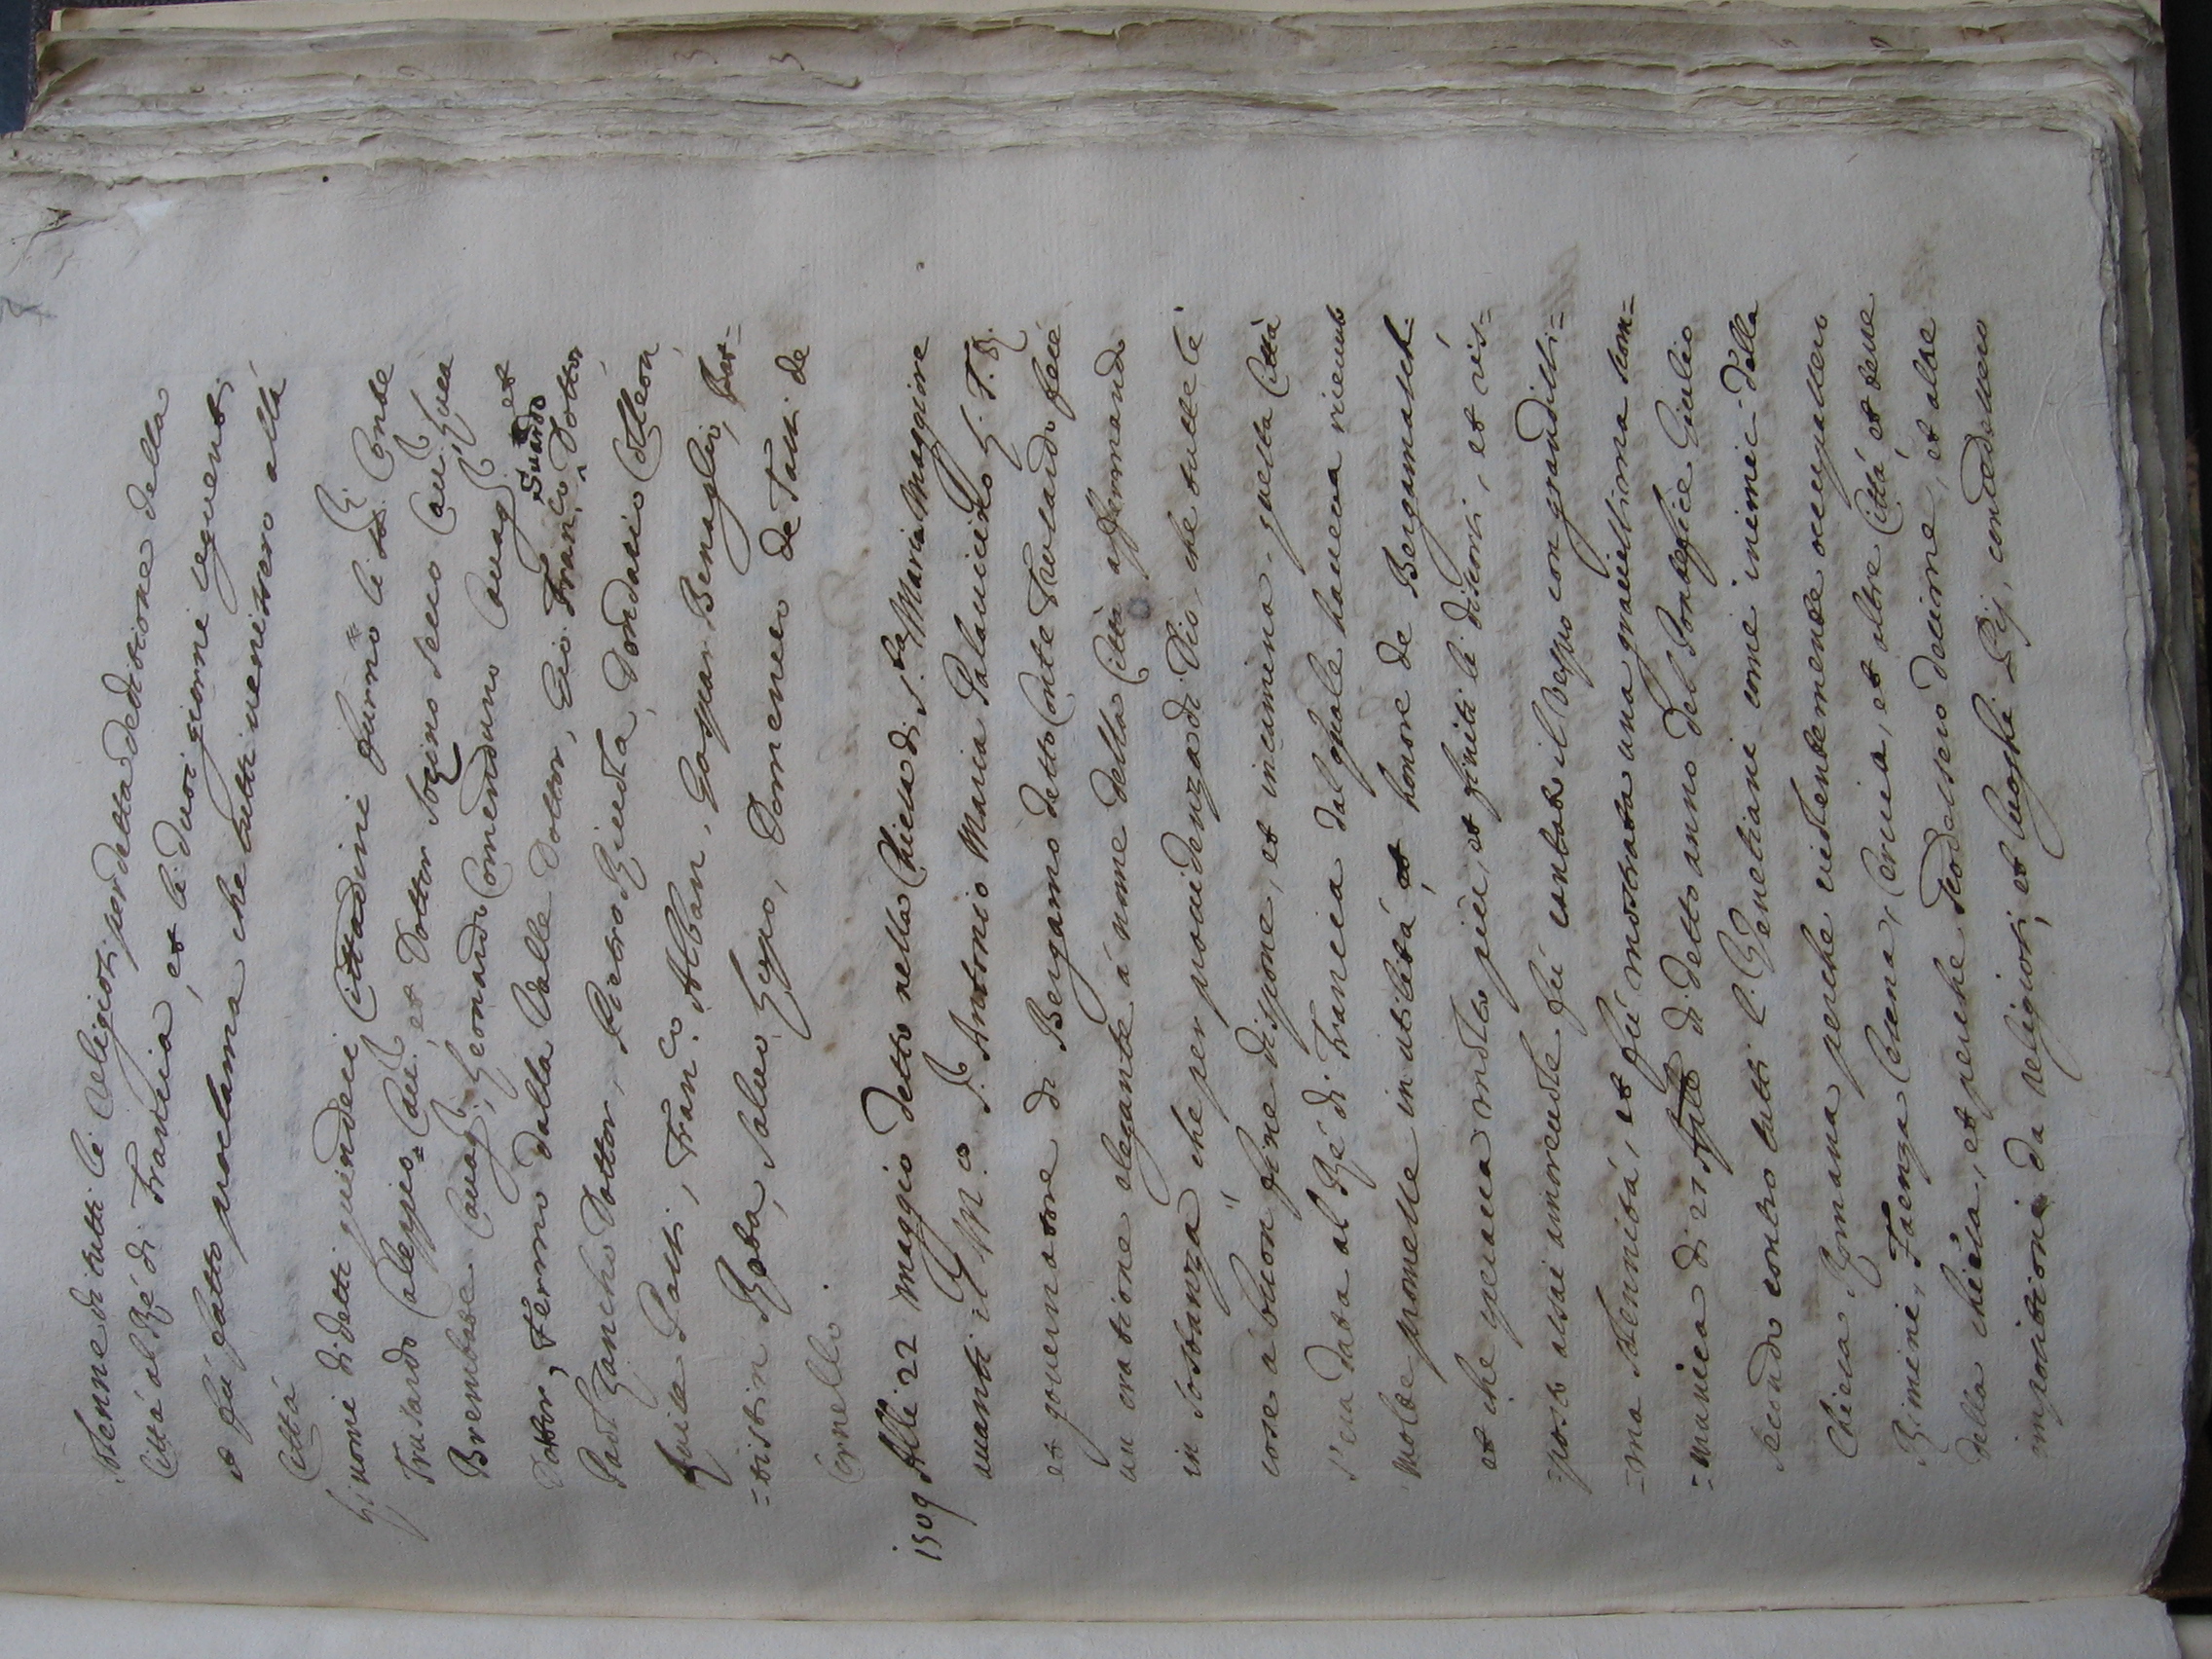 solenne di tutti li Religiosi per detta deditione della
Città al Ré di Francia, et li duoi giorni seguenti
et fù fatto proclama che tutti venissero alla
Città
Li nomi di detti quindeci Cittadini furno li Conte
Trusardo Caleppio Cau.r, et Dottor Socino Secco Cau.r Luca
Brembate Cauag.r, Leonardo Comenduno Cauag.r et
Dottor, Fermo dalla Valle Dottor, Gio: Fran.co Suardo Dottor
Zancho Dottor, Pietro Riuola, Dondacio Colleon
Patti, Fran.co Alban, Gaspar Benaglio, Bat=
=tistin Rota, Saluo Lupo, Domenico de Tassi de
Cornello.
1509 Alli 22 Maggio detto nella Chiesa di S.ta Maria Maggiore
auanti il M.co S.r Antonio Maria Palauicino L. T. R.
et gouernatore di Bergamo detto Conte Trusardo fece
un oratione elegante a nome della Città affermando
in sostanza che per prouidenza di Dio che tutte le
cose a buon fine dispone, et incamina. quella Città
s'era data al Ré di Francia dal quale haueua riceuuto
molte promesse in utilità, et honore de Bergamaschi
et che speraua molto più, et finiti li discorsi, et ris=
=posto assai amoreuole fù cantato il Vespro con grandissi=
=ma solennità, et fù mostrata una grauissima scom=
=munica di 27 Aprile di detto anno del Pontefice Giulio
secondo contro tutti l. Venetiani come inimici della
Chiesa Romana perche euidentemente occupassero
Rimini, Faenza Cesena, Ceruia, et altre Città, et terre
della chiesa, et perche scodessero decime, et altre
impositioni da religiosi, et luoghi Pij, contradessero